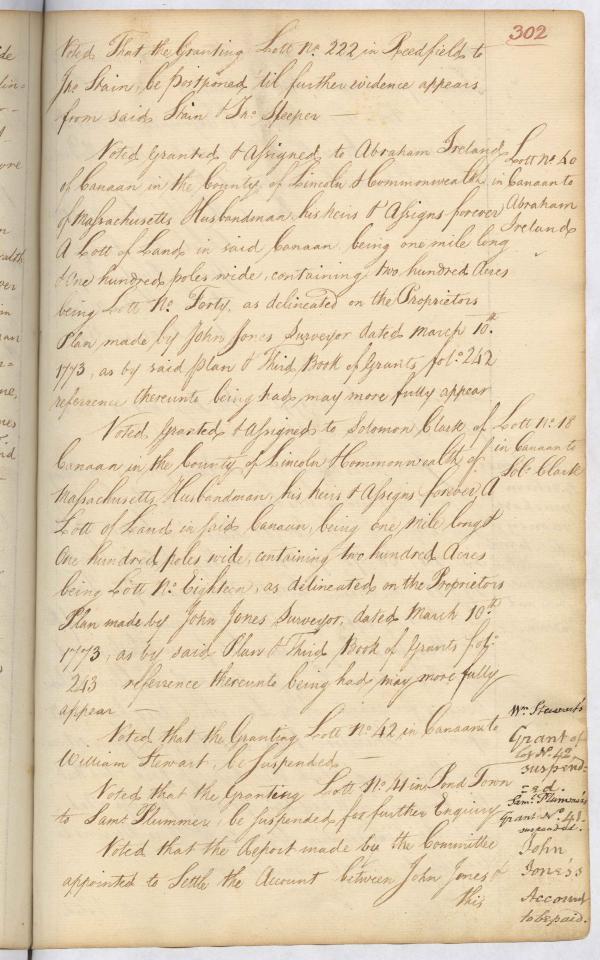 302
Voted That the Granting Lott No. 222 in Readfield to
Jno Stain, be postponed 'til further evidence appears
from said Stain & Jno. Steeper —
Voted Granted & Assigned to Abraham Ireland
of Canaan in the County of Lincoln & Commonwealth
of Massachusetts Husbandman, his heirs & Assigns forever
A Lott of Land in said Canaan, being one mile long
& One hundred poles wide, containing two hundred Acres
being Lott No. Forty, as delineated on the Proprietors
Plan made by John Jones Surveyor dated March 10th.
1773, as by said plan & Third Book of Grants fol.o 242
referrence thereunto being had may more fully appear
Lott No. 40
in Canaan to
Abraham
Ireland
Voted Granted & Assigned to Solomon Clark of
Canaan in the County of Lincoln & Commonwealth of
Massachusetts Husbandman, his heirs & Assigns forever, A
Lott of Land in said Canaan, being one mile long &
One hundred poles wide, containing two hundred Acres
being Lott No. Eighteen, as delineated on the Proprietors
Plan made by John Jones Surveyor, dated March 10th
1773, as by said Plan & Third Book of Grants fol.o
243 referrence thereunto being had may more fully
appear —
Lott No. 18
in Canaan to
Sol.o Clark
Voted that the Granting Lott No. 42 in Canaan to
William Stewart, be suspended —
Wm. Stewart's
Grant of
Lot No. 42
suspend=
=ed.
Voted that the Granting Lott No. 41 in Pond Town
to Saml Plummer, be suspended for further Enquiry
Saml. Plummer's
Grant No. 41
suspended.
Voted that the Report made by the Committee
appointed to Settle the Account between John Jones &
this
John
Jones's
Account
to be paid.